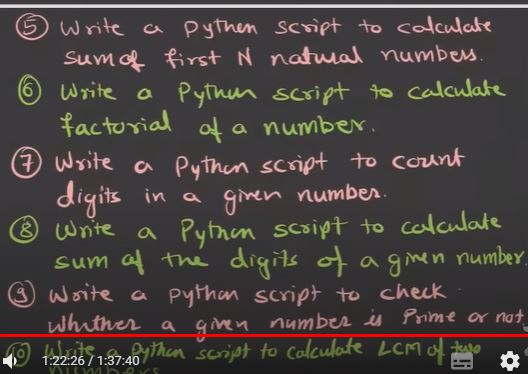 ⑤ Write a Python script to calculate
sum of first N natural numbers.
⑥ Write a Python script to calculate
factorial of a number.
⑦ Write a Python script to count
digits in a given number.
⑧ Write a Python script to calculate
sum of the digits of a given number
⑨ Write a Python script to check
Whether a given number is Prime or not.
⑩ Write a Python script to calculate LCM of two
numbers
1:22:26 / 1:37:40